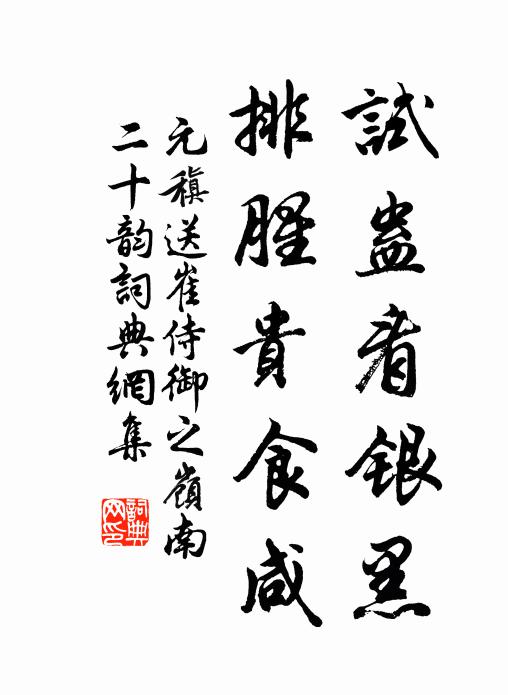 試蠱看銀黑
排腥貴食咸
元稹送崔侍御之嶺南
二十韵詞典網集
詞典
网印